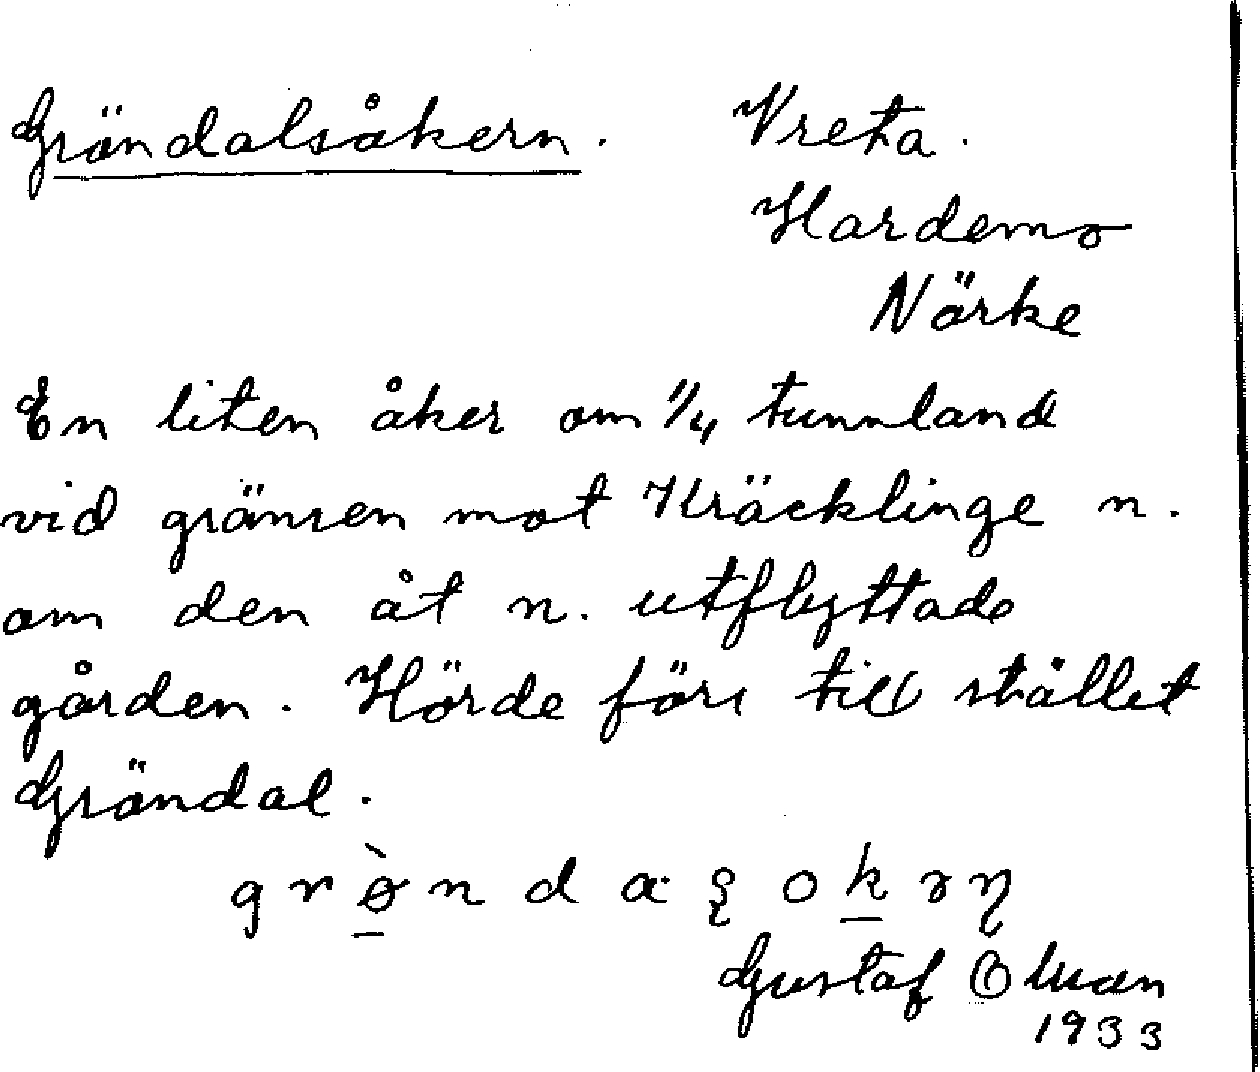 Gröndalsåkern. Vreta.
Hardemo
Närke
En liten åker om 1/4 tunnland
vid gränsen mot Kräcklinge n.
om den åt n. utflyttade
gården. Hörde förs till stället
Gröndal.
Gustaf Olsson
1933